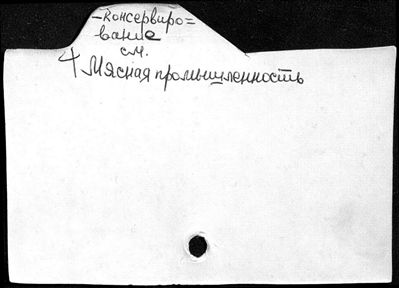 –Консервиро=
вание
см.
4 Мясная промышленность